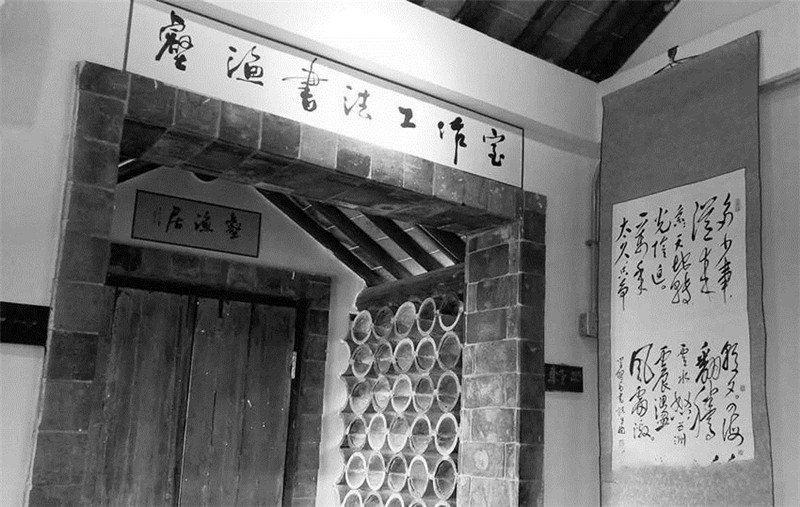 壑渔书法工作室
壑渔居
多少事
從来
急天地轉
光陰迫
一萬年
太久只争
朝夕四海
翻騰
雲水怒五洲
震盪
風雷激